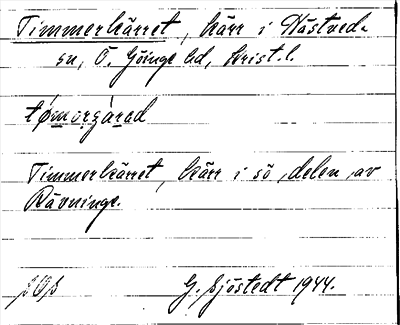 Timmerkärret, kärr i Hästveda
sn, Ö. Göinge hd, Krist. l.
tømərgárad
Timmerkärret, kärr i sö delen av
Rävninge.
G. Sjöstedt 1944.